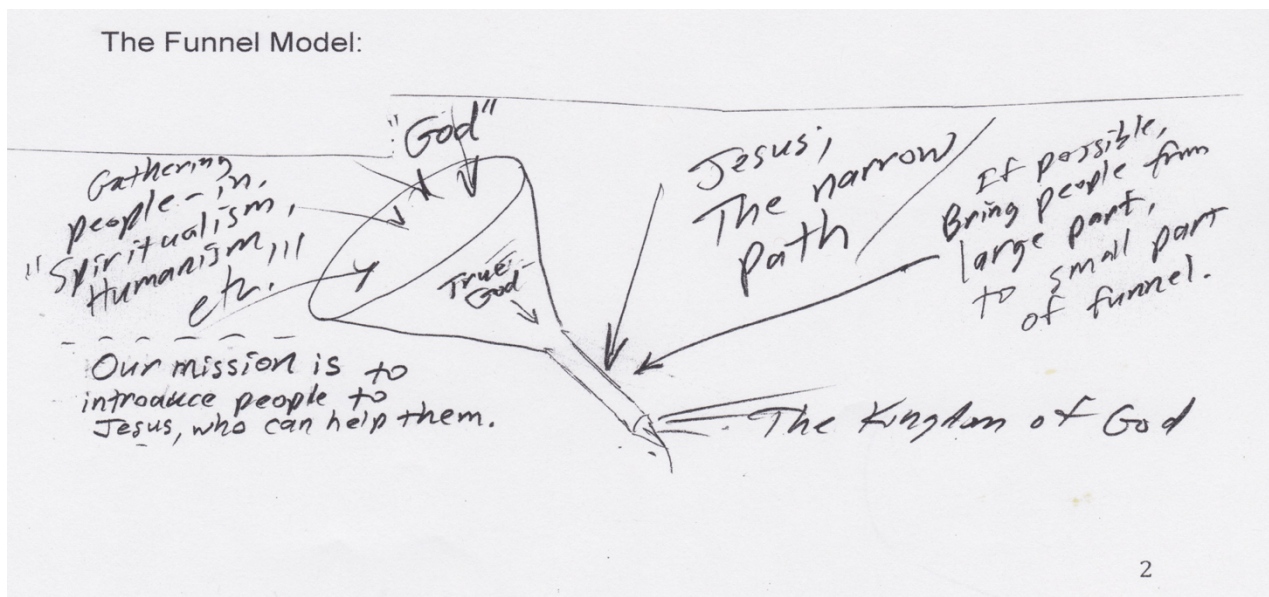 The Funnel Model:
"God"
Gathering
people-in,
"Spiritualism,
Humanism,,,
etc.
True
God
Jesus,
The narrow
path
If possible,
Bring people from
large part,
to small part
of funnel.
Our mission is to
introduce people to
Jesus, who can help them.
The Kingdom of God
2